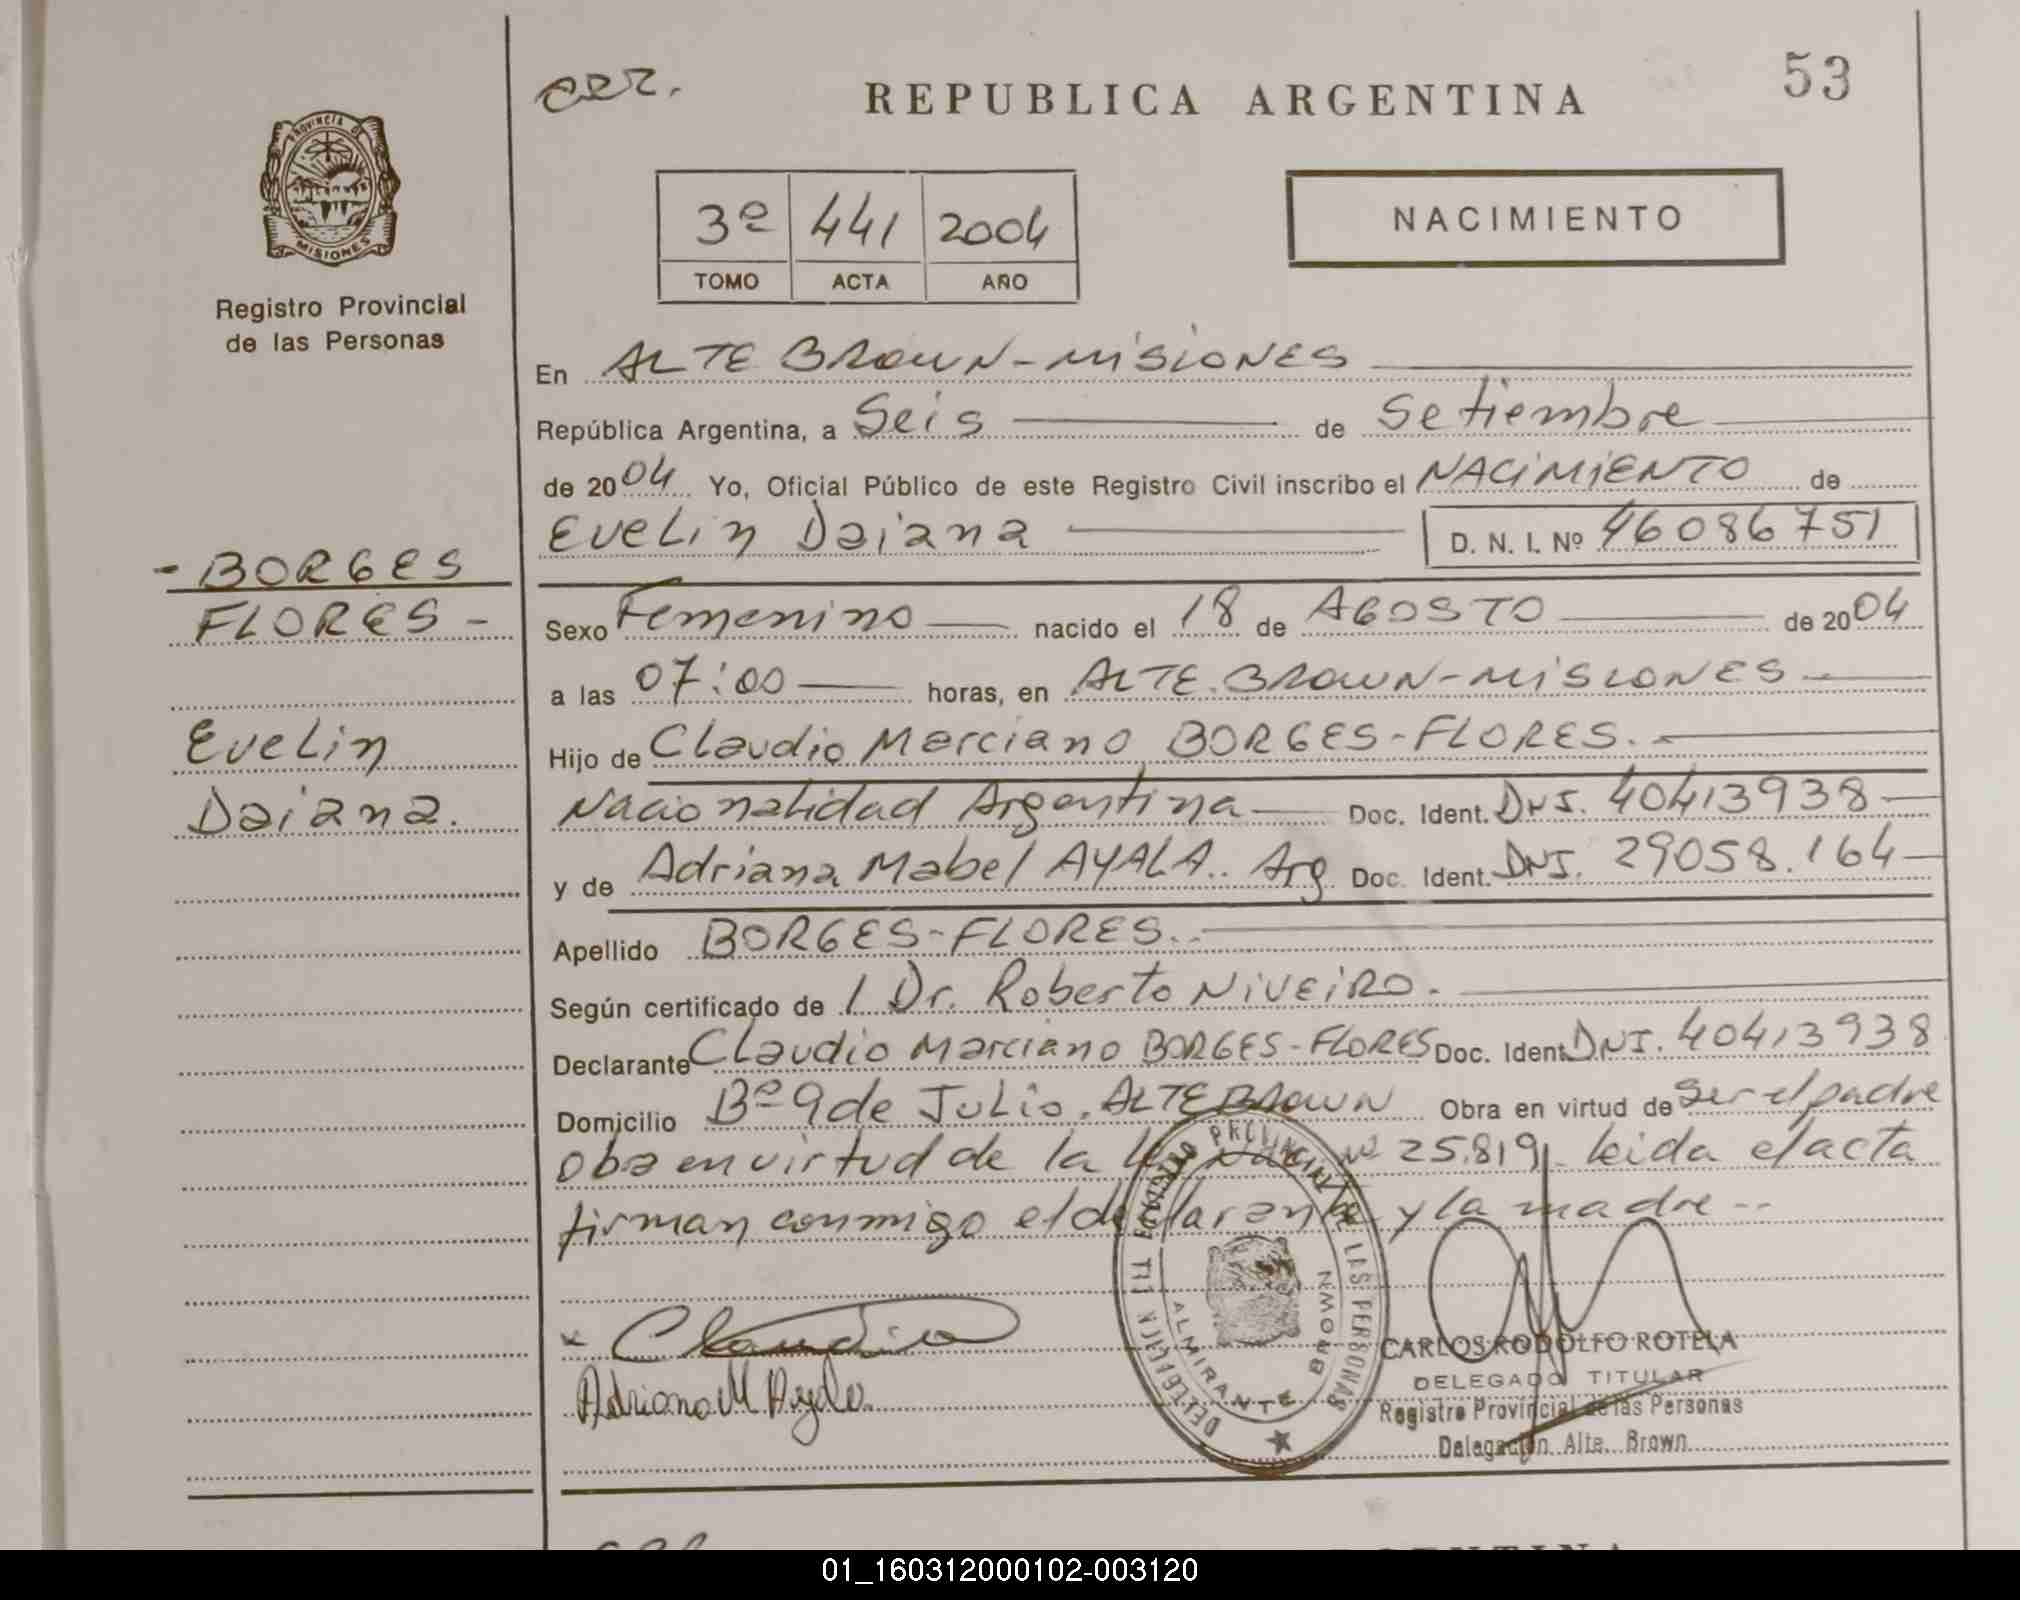 crr.
REPUBLICA ARGENTINA
53
PROVINCIA DE
MISIONES
Registro Provincial
de las Personas
3º 441 2004
TOMO ACTA AÑO
NACIMIENTO
En ALTE BROWN-MISIONES
República Argentina, a Seis de Setiembre
de 2004 Yo, Oficial Público de este Registro Civil inscribo el NACIMIENTO de
Evelin Daiana D. N. I. Nº 46086751
- BORGES
FLORES -
Evelin
Daiana.
Sexo Femenino nacido el 18 de AGOSTO de 2004
a las 07:00 horas, en ALTE. BROWN-MISIONES
Hijo de Claudio Marciano BORGES-FLORES.
Nacionalidad Argentina Doc. Ident. DNI. 40413938
y de Adriana Mabel AYALA.. Arg. Doc. Ident. DNI. 29058.164
Apellido BORGES-FLORES..
Según certificado de / Dr. Roberto NIVEIRO.
Declarante Claudio Marciano BORGES-FLORES Doc. Ident DNI. 40413938
Domicilio Bº 9 de Julio. ALTE BROWN Obra en virtud de ser el padre
obra en virtud de la Nº 25.819. leida el acta
firman conmigo el declarante y la madre --
x Claudio
Adriana M Ayala.
DELEGACION REGISTRO PROVINCIAL DE LAS PERSONAS
ALMIRANTE BROWN
CARLOS RODOLFO ROTELA
DELEGADO TITULAR
Registro Provincial de las Personas
Delegación Alte. Brown
01_160312000102-003120